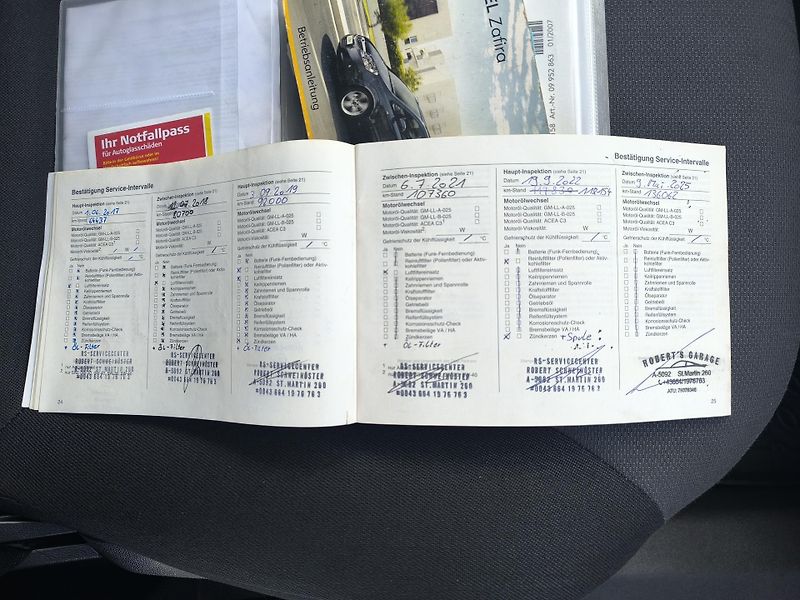 EL Zafira
Betriebsanleitung
Art.-Nr. 09 952 863 01/2007
Ihr Notfallpass
für Autoglasschäden
Bestätigung Service-Intervalle
Haupt-Inspektion (siehe Seite 21)
Datum 1.06.2017
km-Stand
Motorölwechsel
Motoröl-Qualität: GM-LL-A-025
Motoröl-Qualität: GM-LL-B-025
Motoröl-Qualität: ACEA C3
Motoröl-Viskosität: W
Gefrierschutz der Kühlflüssigkeit °C
Ja Nein
Batterie (Funk-Fernbedienung)
Reinluftfilter (Pollenfilter) oder Aktiv-
kohlefilter
Luftfiltereinsatz
Keilrippenriemen
Zahnriemen und Spannrolle
Kraftstofffilter
Ölseparator
Getriebeöl
Bremsflüssigkeit
Reifenfüllsystem
Korrosionsschutz-Check
Bremsbeläge VA / HA
Zündkerzen
+ Öl-Filter
RS-SERVICECENTER
ROBERT SCHWEINÖSTER
A-5092 ST.MARTIN 260
0043 664 19 76 76 3
24
Zwischen-Inspektion (siehe Seite 21)
Datum
km-Stand
Motorölwechsel
Motoröl-Qualität: GM-LL-A-025
Motoröl-Qualität: GM-LL-B-025
Motoröl-Qualität: ACEA C3
Motoröl-Viskosität: W
Gefrierschutz der Kühlflüssigkeit °C
Ja Nein
Batterie (Funk-Fernbedienung)
Reinluftfilter (Pollenfilter) oder Aktiv-
kohlefilter
Luftfiltereinsatz
Keilrippenriemen
Zahnriemen und Spannrolle
Kraftstofffilter
Ölseparator
Getriebeöl
Bremsflüssigkeit
Reifenfüllsystem
Korrosionsschutz-Check
Bremsbeläge VA / HA
Zündkerzen
+ Öl-Filter
RS-SERVICECENTER
ROBERT SCHWEINÖSTER
A-5092 ST.MARTIN 260
0043 664 19 76 76 3
Haupt-Inspektion (siehe Seite 21)
Datum 3.09.2019
km-Stand 92000
Motorölwechsel
Motoröl-Qualität: GM-LL-A-025
Motoröl-Qualität: GM-LL-B-025
Motoröl-Qualität: ACEA C3
Motoröl-Viskosität: W
Gefrierschutz der Kühlflüssigkeit °C
Ja Nein
Batterie (Funk-Fernbedienung)
Reinluftfilter (Pollenfilter) oder Aktiv-
kohlefilter
Luftfiltereinsatz
Keilrippenriemen
Zahnriemen und Spannrolle
Kraftstofffilter
Ölseparator
Getriebeöl
Bremsflüssigkeit
Reifenfüllsystem
Korrosionsschutz-Check
Bremsbeläge VA / HA
Zündkerzen
+ Öl-Filter
RS-SERVICECENTER
ROBERT SCHWEINÖSTER
A-5092 ST.MARTIN 260
0043 664 19 76 76 3
Bestätigung Service-Intervalle
Zwischen-Inspektion (siehe Seite 21)
Datum 6.7.2021
km-Stand 107360
Motorölwechsel
Motoröl-Qualität: GM-LL-A-025
Motoröl-Qualität: GM-LL-B-025
Motoröl-Qualität: ACEA C3
Motoröl-Viskosität: W
Gefrierschutz der Kühlflüssigkeit °C
Ja Nein
Batterie (Funk-Fernbedienung)
Reinluftfilter (Pollenfilter) oder Aktiv-
kohlefilter
Luftfiltereinsatz
Keilrippenriemen
Zahnriemen und Spannrolle
Kraftstofffilter
Ölseparator
Getriebeöl
Bremsflüssigkeit
Reifenfüllsystem
Korrosionsschutz-Check
Bremsbeläge VA / HA
Zündkerzen
Öl-Filter
RS-SERVICECENTER
ROBERT SCHWEINÖSTER
A-5092 ST.MARTIN 260
0043 664 19 76 76 3
Haupt-Inspektion (siehe Seite 21)
Datum 19.9.2022
km-Stand 118154
Motorölwechsel
Motoröl-Qualität: GM-LL-A-025
Motoröl-Qualität: GM-LL-B-025
Motoröl-Qualität: ACEA C3
Motoröl-Viskosität: W
Gefrierschutz der Kühlflüssigkeit °C
Ja Nein
Batterie (Funk-Fernbedienung)
Reinluftfilter (Pollenfilter) oder Aktiv-
kohlefilter
Luftfiltereinsatz
Keilrippenriemen
Zahnriemen und Spannrolle
Kraftstofffilter
Ölseparator
Getriebeöl
Bremsflüssigkeit
Reifenfüllsystem
Korrosionsschutz-Check
Bremsbeläge VA / HA
Zündkerzen + Spule
RS-SERVICECENTER
ROBERT SCHWEINÖSTER
A-5092 ST.MARTIN 260
0043 664 19 76 76 3
Zwischen-Inspektion (siehe Seite 21)
Datum 9. Mai 2025
km-Stand 136062
Motorölwechsel
Motoröl-Qualität: GM-LL-A-025
Motoröl-Qualität: GM-LL-B-025
Motoröl-Qualität: ACEA C3
Motoröl-Viskosität: W
Gefrierschutz der Kühlflüssigkeit °C
Ja Nein
Batterie (Funk-Fernbedienung)
Reinluftfilter (Pollenfilter) oder Aktiv-
kohlefilter
Luftfiltereinsatz
Keilrippenriemen
Zahnriemen und Spannrolle
Kraftstofffilter
Ölseparator
Getriebeöl
Bremsflüssigkeit
Reifenfüllsystem
Korrosionsschutz-Check
Bremsbeläge VA / HA
Zündkerzen
ROBERT'S GARAGE
A-5092 St.Martin 260
+43664/1976763
25